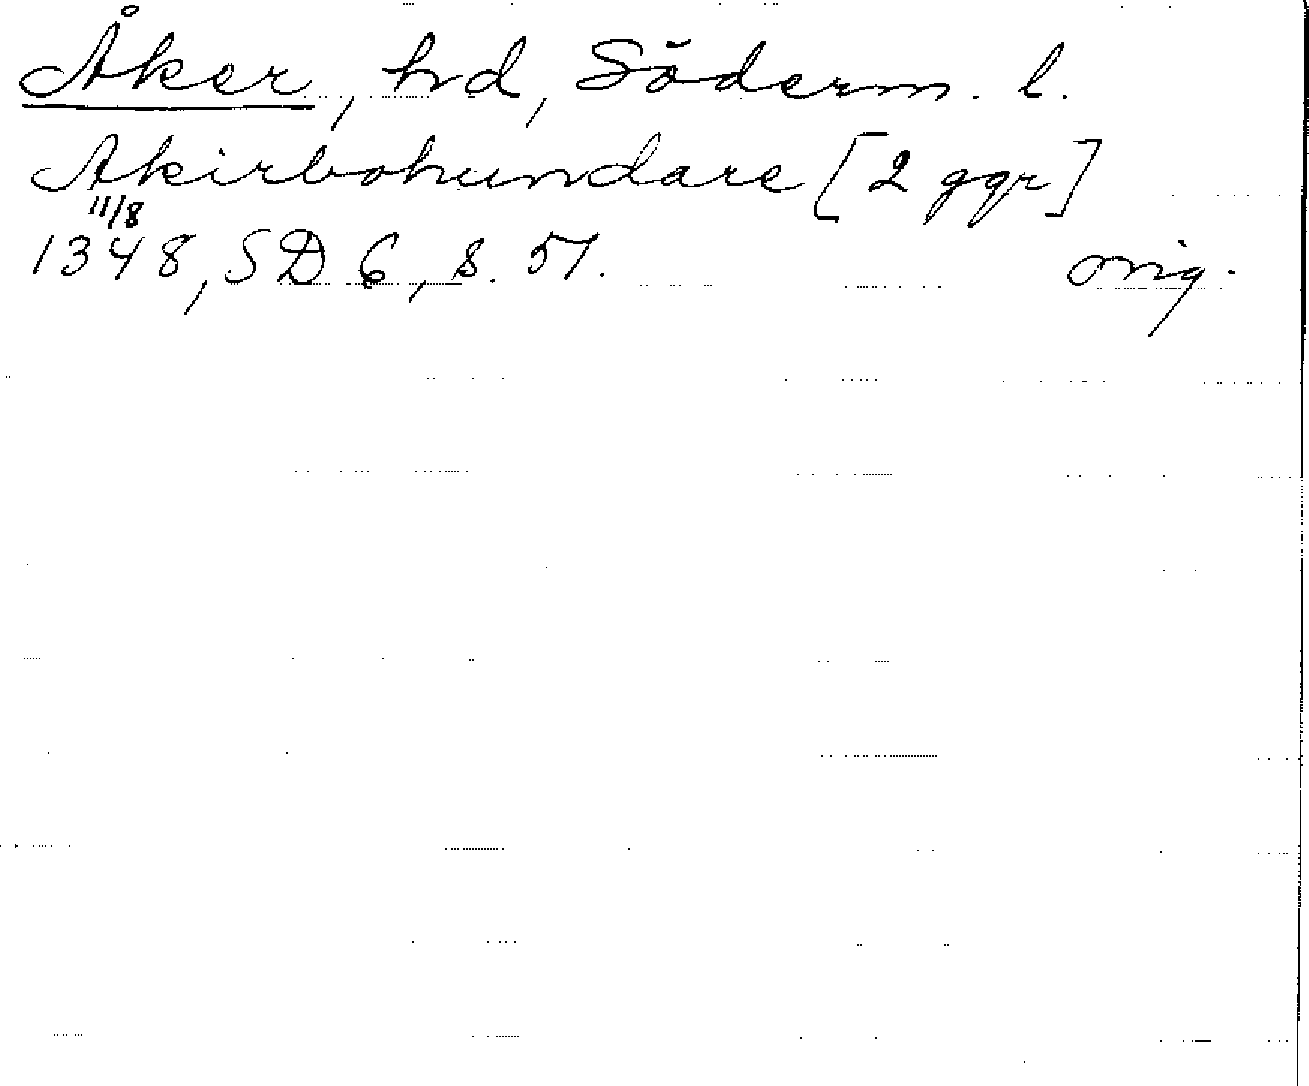 Åker, hd, Söderm. l.
Akirbohundare [2 ggr]
11/8
1348, SD 6, s. 51. orig.